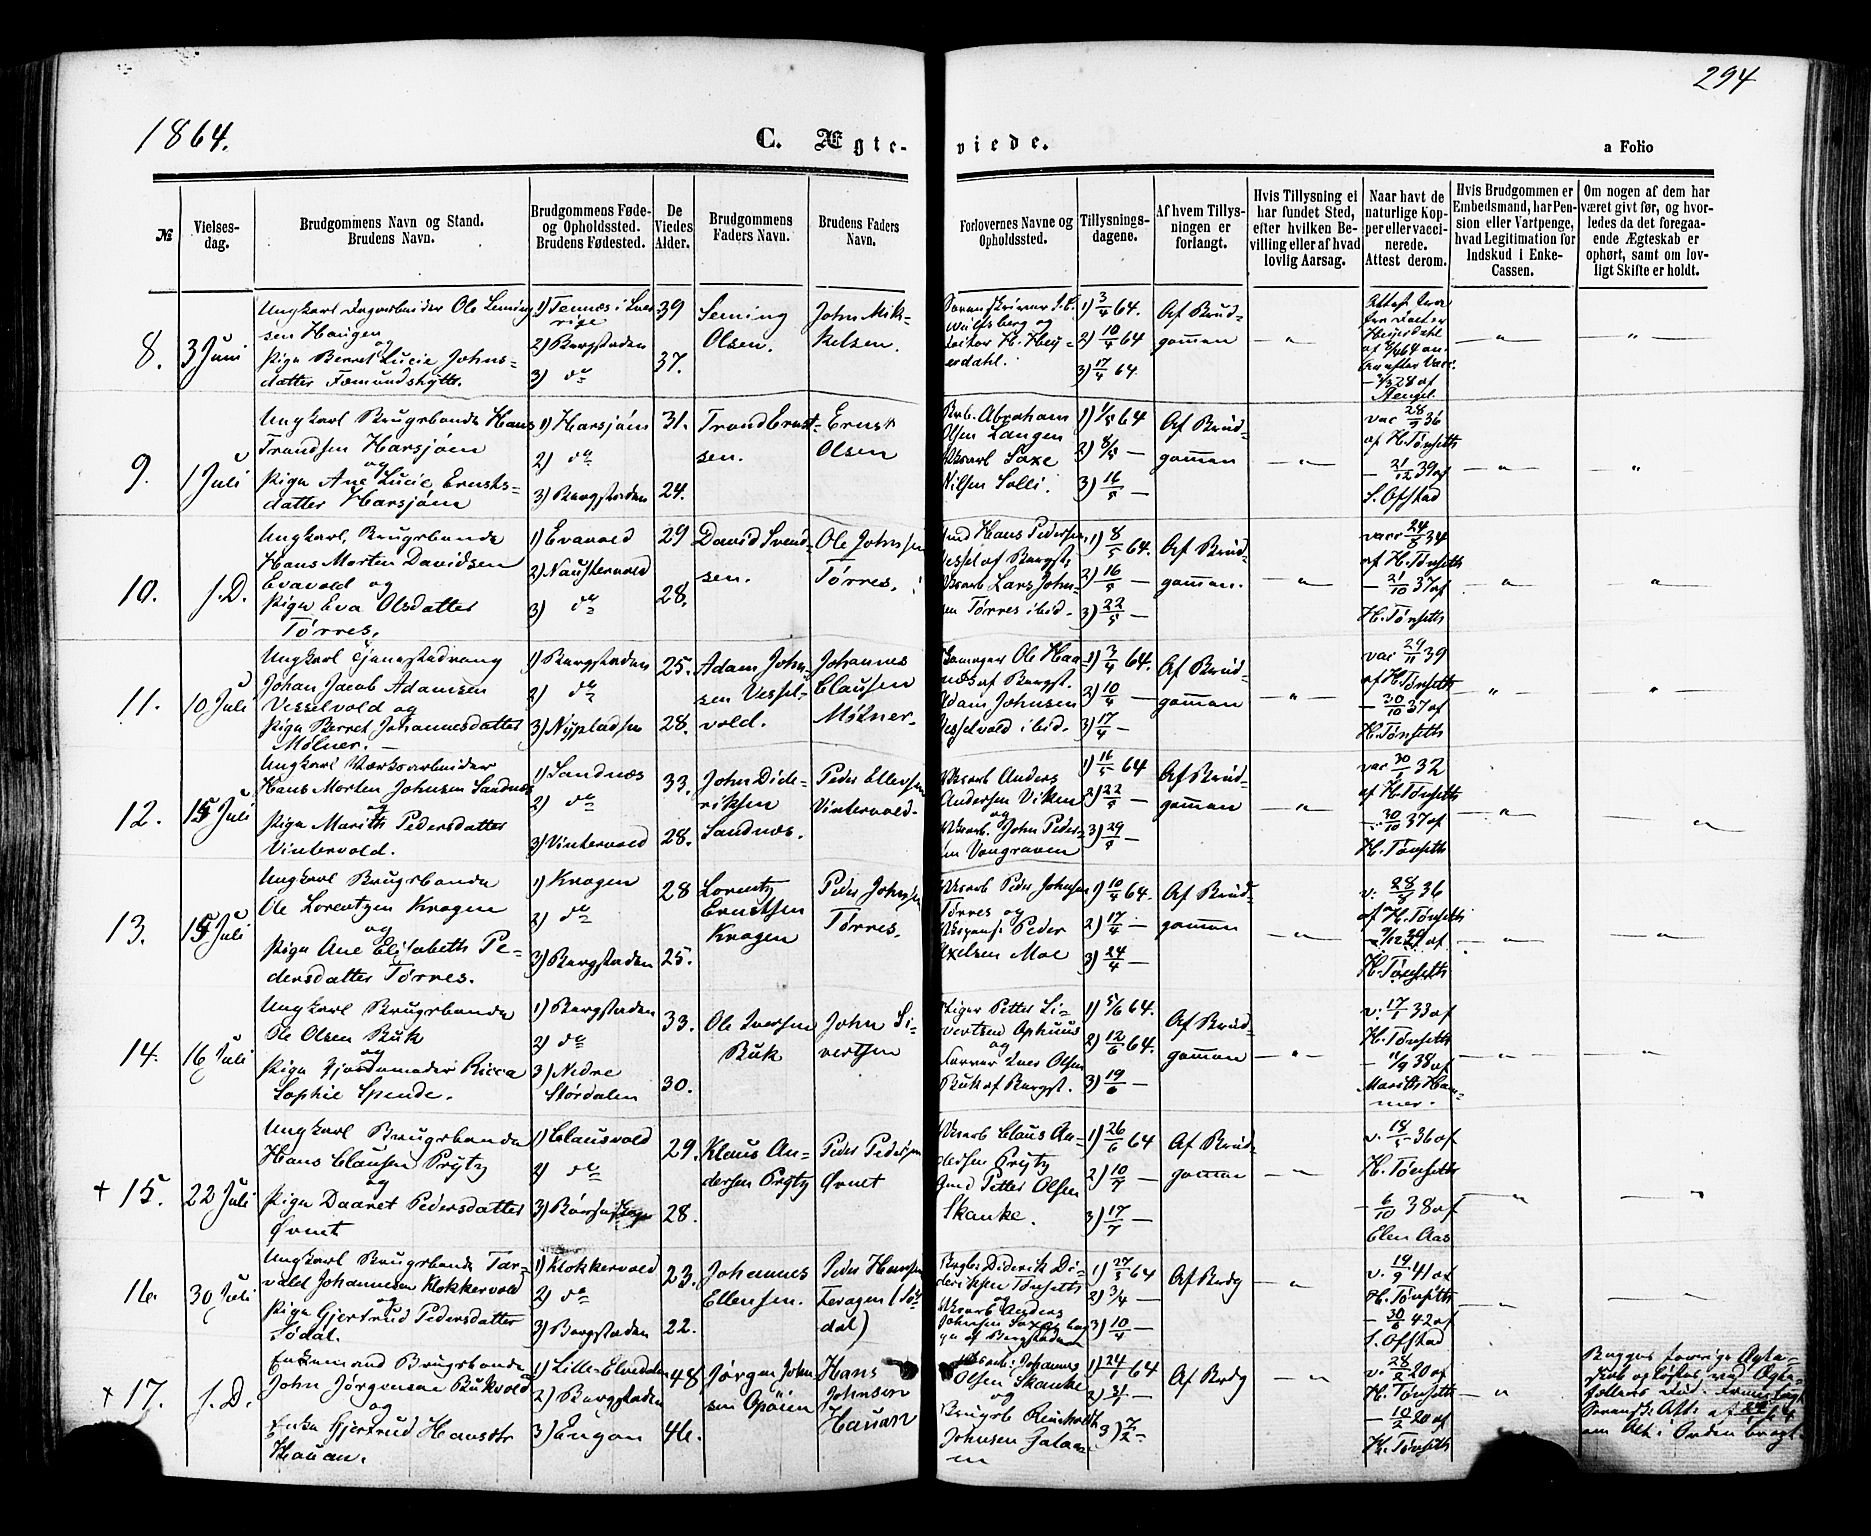 294
1864.
C. Ægteviede.
a Folio
№
Vielses-
dag.
Brudgommens Navn og Stand.
Brudens Navn.
Brudgommens Føde-
og Opholdssted.
Brudens Fødested.
De
Viedes
Alder.
Brudgommens
Faders Navn.
Brudens Faders
Navn.
Forlovernes Navne og
Opholdssted.
Tillysnings-
dagene.
Af hvem Tillys-
ningen er
forlangt.
Hvis Tillysning ei
har fundet Sted,
efter hvilken Be-
villing eller af hvad
lovlig Aarsag.
Naar havt de
naturlige Kop-
per eller vacci-
nerede.
Attest derom.
Hvis Brudgommen er
Embedsmand, har Pen-
sion eller Vartpenge,
hvad Legitimation for
Indskud i Enke-
Cassen.
Om nogen af dem har
været givt før, og hvor-
ledes da det foregaa-
ende Ægteskab er
ophørt, samt om lov-
ligt Skifte er holdt.
8.
3 Juni
Ungkarl Ole Seming
sen Haugen
og
Pige Berret Lucie Johns-
datter Fæmundshytt.
1) Tennæs i Sve-
rige
2) Bergstaden
3) do
39
37.
Seming
Olsen.
John Mik-
kelsen.
Sorenskriver
Wulfsberg og
Doktor H. Hey-
erdahl.
1) 3/4 64.
2) 10/4 64
3) 17/4 64.
Af Brud-
gommen
9.
1 Juli
Ungkarl Brugsbonde Hans
Trondsen Harsjøen
og
Pige Ane Lucie Ernsts-
datter Harsjøen
1) Harsjøen
2) do
3) Bergstaden
31.
24.
Trond Ernst-
sen.
Ernst
Olsen
Abraham
Olsen Langen
Saxe
Nilsen Solli.
1) 1/5 64
2) 8/5 —
3) 16/5 —
Af Brud-
gommen
vac 28/9 36
af H. Tønseth
— 21/12 39 af
S. Ofstad
10.
s. D.
Ungkarl, Brugsbonde
Hans Morten Davidsen
Evavold og
Pige Eva Olsdatter
Tørres.
1) Evavold
2) Naustervold
3) do
29
28.
David Svend-
sen.
Ole Johnsen
Tørres.
Hans Pedersen
Vessel af Bergst.
Lars John-
sen Tørres ibid.
1) 8/5 64.
2) 16/5 —
3) 22/5 —
Af Brud-
gommen.
vacc 24/8 34
af H. Tønseth
— 21/10 37 af
H. Tønseth
11.
10 Juli
Ungkarl
Johan Jacob Adamsen
Vesselvold og
Pige Berret Johannesdatter
Mølner. —
1) Bergstaden
2) do
3) Nypladsen
25.
28.
Adam John-
sen Vessel-
vold.
Johannes
Clausen
Mølner.
Ole Haa-
næs af Bergst.
Adam Johnsen
Vesselvold ibid.
1) 3/4 64.
2) 10/4 —
3) 17/4 —
Af Brud-
gommen
vac 29/11 39
af H. Tønseth
— 30/10 37 af
H. Tønseth
12.
15 Juli
Ungkarl Værksarbeider
Hans Morten Johnsen Sandnæs
og
Pige Marith Pedersdatter
Vintervold.
1) Sandnæs
2) do
3) Vintervold
33.
28.
John Dide-
riksen
Sandnæs.
Peder Ellevsen
Vintervold.
Anders
Andersen Viken
og
John Peder-
sen Vongraven
1) 16/5 64
2) 22/5 —
3) 29/5 —
Af Brud-
gommen
vac 30/1 32
af H. Tønseth
— 30/10 37 af
H. Tønseth
13.
15 Juli
Ungkarl Brugsbonde
Ole Lorentzen Kragen
og
Pige Ane Elisabeth Pe-
dersdatter Tørres.
1) Kragen
2) do
3) Bergstaden
28
25.
Lorentz
Ernstsen
Kragen
Peder Johnsen
Tørres.
Peder Johnsen
Tørres og
Peder
Axelsen Moe
1) 10/4 64.
2) 17/4 —
3) 24/4 —
Af Brud-
gommen
v. 28/8 36
af H. Tønseth
H. Tønseth
14.
16 Juli
Ungkarl Brugsbonde
Ole Olsen Buk
og
Pige Jordemoder Ricca
Sophie Spende.
1) Bergstaden
2) do
3) Nedre
Størdalen
33.
30.
Ole Iversen
Buk
John Si-
vertsen
Petter Si-
vertsen Ophuus
og
Iver Olsen
Buk af Bergst.
1) 5/6 64.
2) 12/6 64.
3) 19/6 —
Af Brud-
gommen
v. 17/1 33 af
H. Tønseth
— 11/9 38 af
Marith Ham-
mer.
+ 15.
22 Juli
Ungkarl Brugsbonde
Hans Clausen Prytz
og
Pige Daaret Pedersdatter
Øvnet
1) Clausvold
2) do
29.
28.
Klaus An-
dersen Prytz
Peder Pedersen
Øvnet
Claus An-
dersen Prytz
Petter Olsen
Skanke.
1) 26/6 64
2) 10/7 —
3) 17/7 —
Af Brud-
gommen
v. 18/5 36 af
H. Tønseth
— 6/10 38 af
Elen Aas
16.
30 Juli
Ungkarl Brugsbonde Tor-
vald Johannesen Klokkervold
og
Pige Gjertrud Pedersdatter
Sødal.
1) Klokkervold
2) do
3) Bergstaden
23.
22.
Johannes
Ellensen.
Peder Hansen
Feragen (Sø-
dal)
Diderik Di-
deriksen Tønseth
og Anders
Johnsen
af Bergstaden
1) 27/3 64
2) 3/4 —
3) 10/4 —
Af Brdg
v. 19/9 41 af
H. Tønseth
— 30/6 42 af
S. Ofstad
+ 17.
s. D.
Enkemand Brugsbonde
John Jørgensen Bukvold
og
Enke Gjertrud Hansdtr
Hauan.
1) Lille-Elvdalen
2) Bergstaden
3) Engan
48
46.
Jørgen John-
sen Opøien
Hans
Johnsen
Hauan
Johannes
Olsen Skanke
og
Brugsb Reinholdt
Johnsen Galaa-
en
1) 24/1 64
2) 31/1 —
3) 7/2 —
Af Brdg
v. 28/2 20 af
H. Tønseth
— 10/2 20 af
H. Tønseth
Begges forrige Ægte-
skab opløstes ved Ægte-
fællens Død.